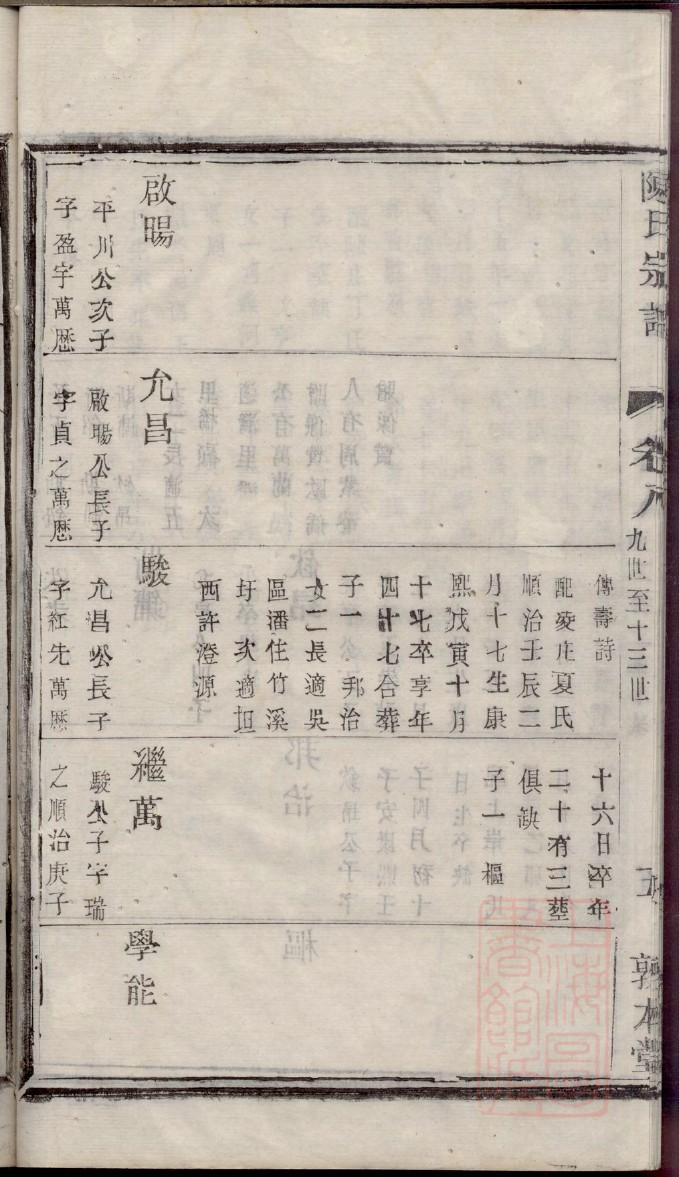 陳氏宗譜
卷八
九世至十三世
敦本堂
啟暘
平川公次子
字盈宇萬歷
允昌
啟暘公長子
字貞之萬歷
傳壽詩
配菱庄夏氏
順治壬辰二
月十七生康
熙戊寅十月
十七卒享年
四十七合葬
子一邦治
女二長適吳
區潘住竹溪
圩次適坦
西許澄源
駿
允昌公長子
字紅先萬歷
十六日卒年
二十有三塟
俱缺
子一樞
繼萬
駿公子字瑞
之順治庚子
學能